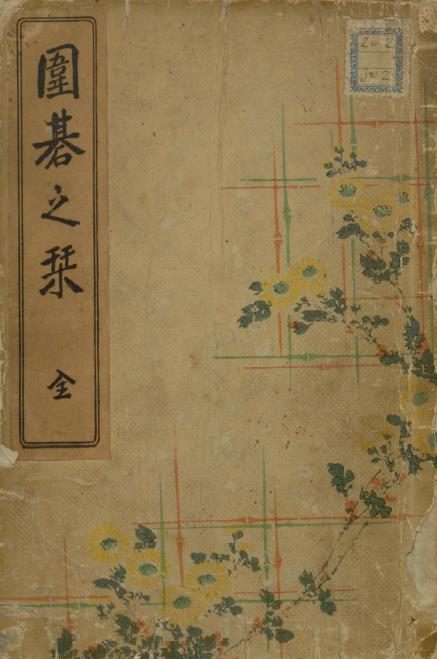 圍碁之栞 全
202